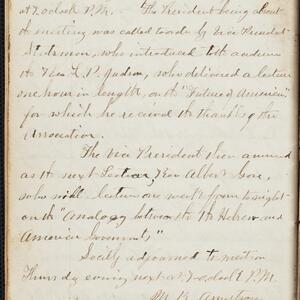 at 7 o'clock P.M. The President being absent
the meeting was called to order by Vice President
who introduced to the audience
the Rev. L. P. Judson, who delivered a lecture
one hour in length, on the "Future of America"
for which he received the thanks of the
Association.
The Vice President then announced
as the next Lecturer, Rev Albert Gore,
who will lecture one week from to night
on the "Analogy between the Hebrew and
American Governments,"
Society adjourned to meet on
Thursday evening next at 7 o'clock P.M.